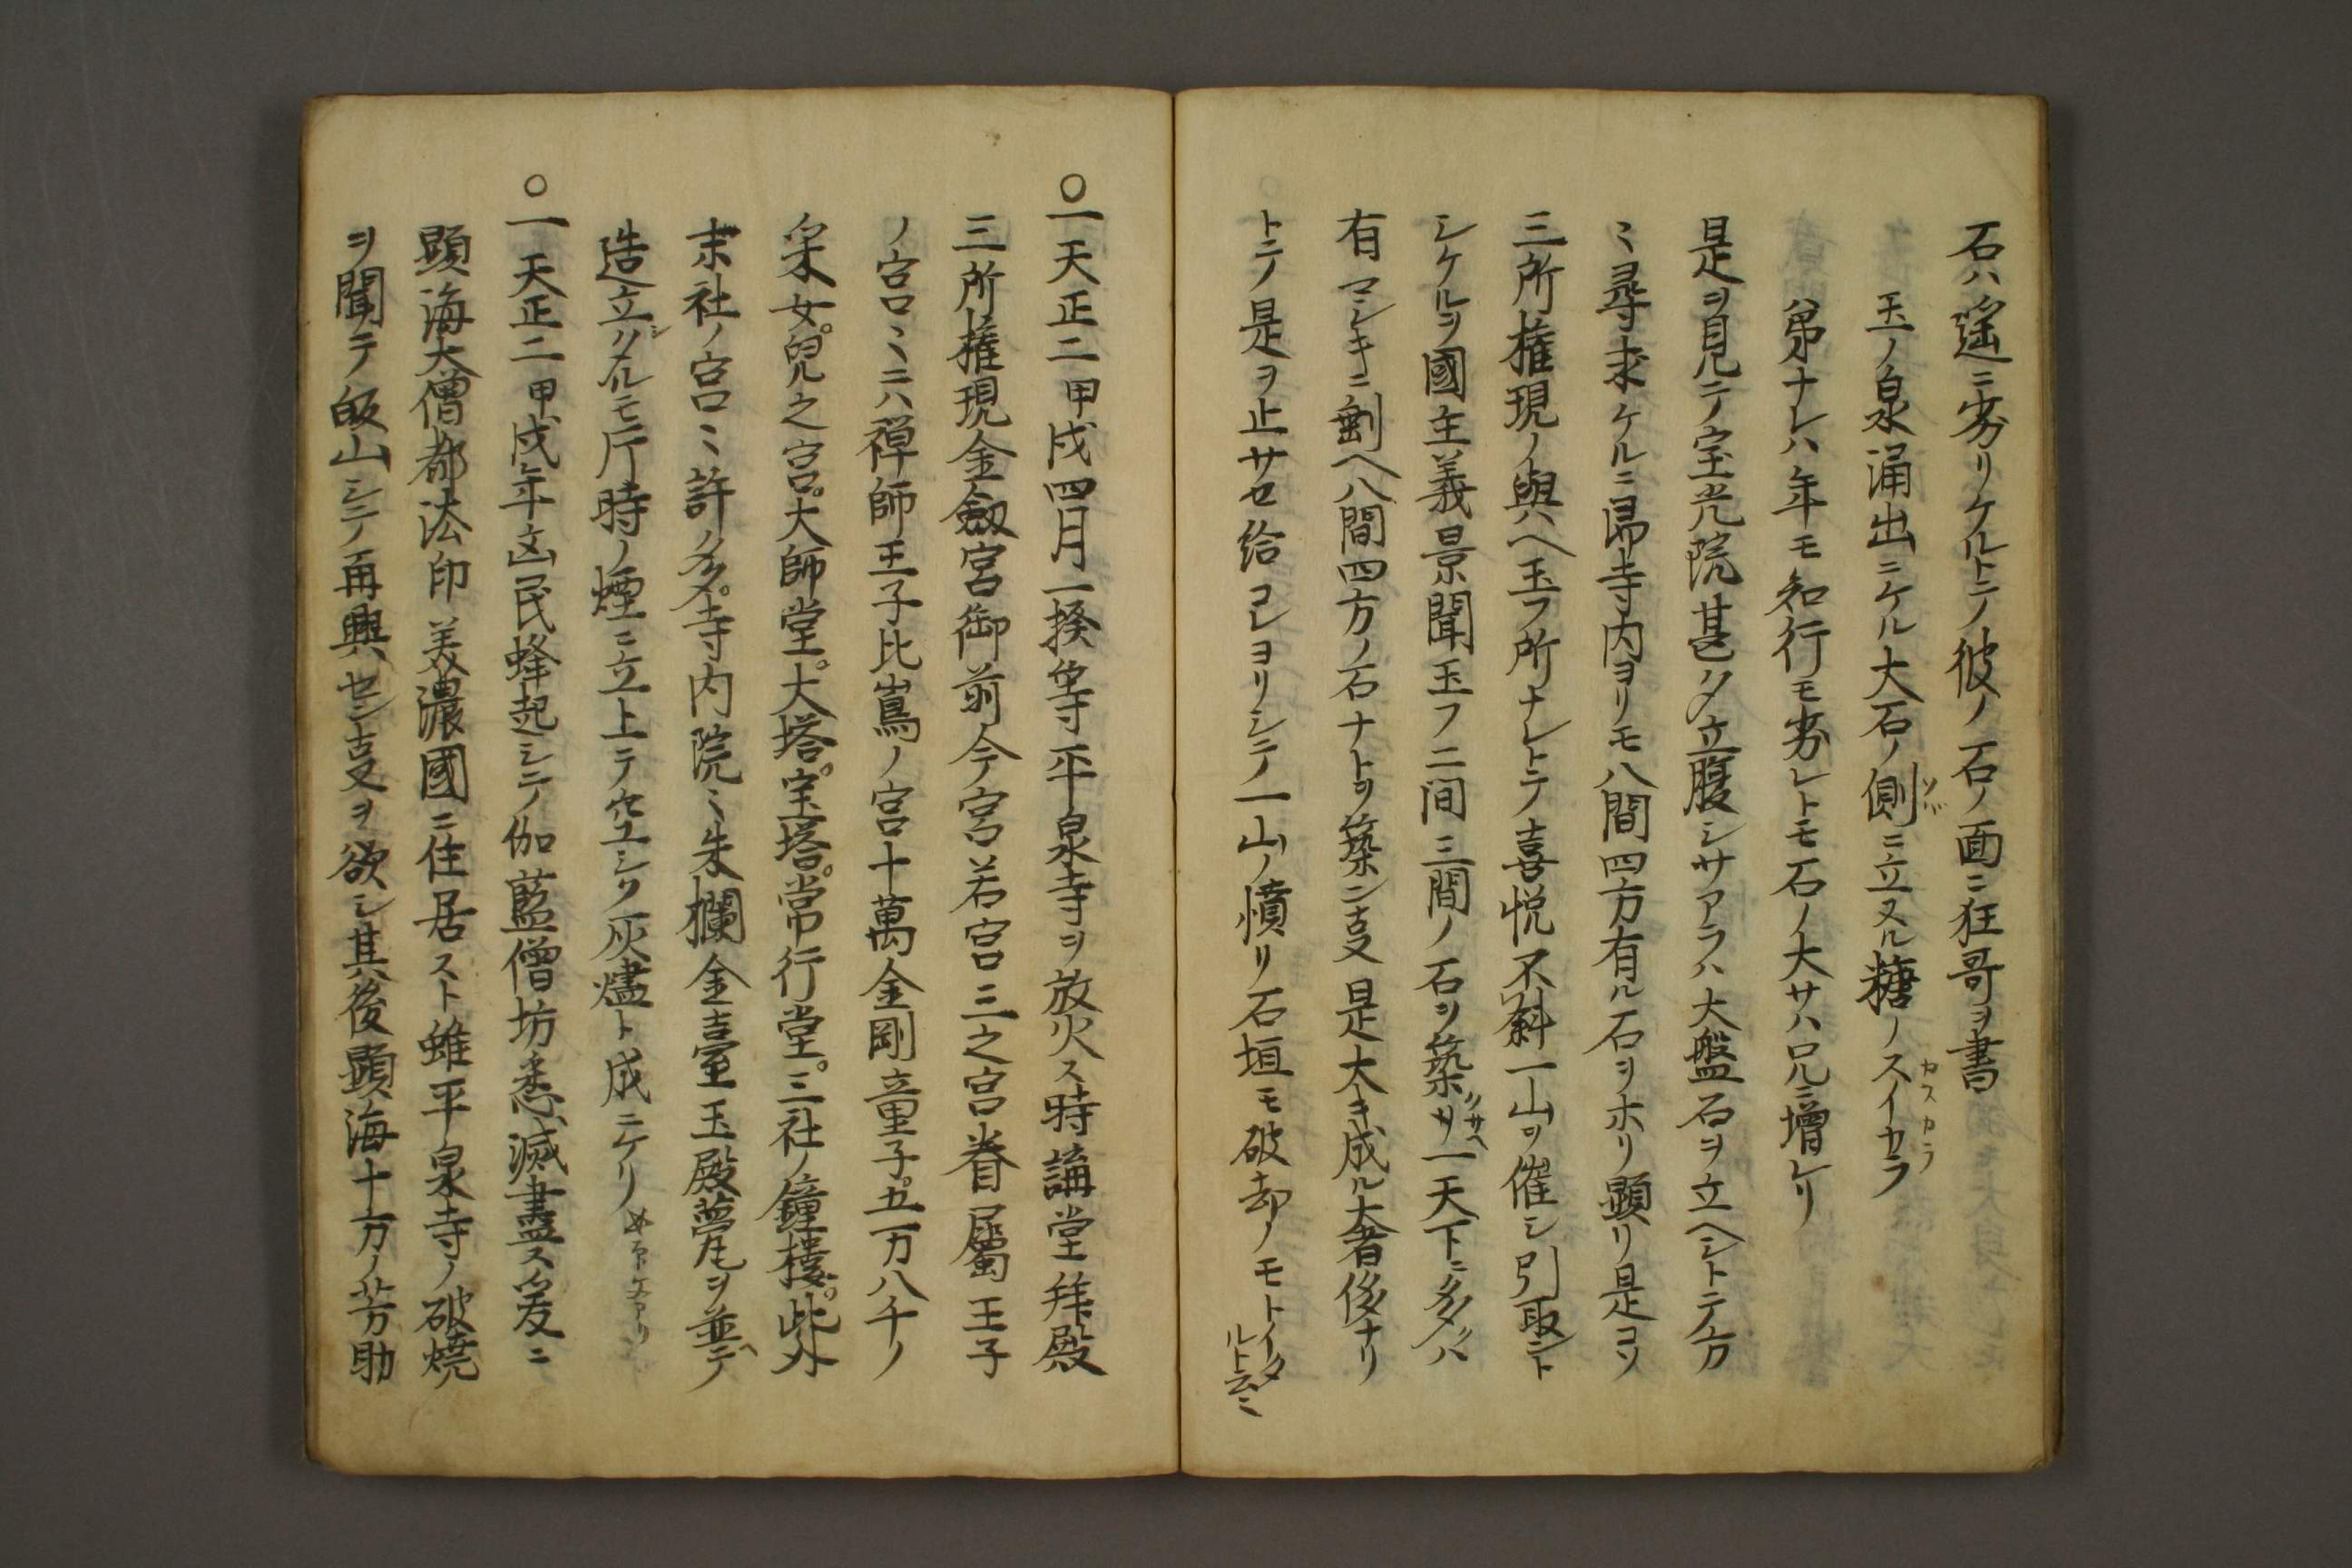 石ハ遥ニ劣リケルトテ彼ノ石ノ面ニ狂哥ヲ書
玉ノ泉涌出ニケル大石ノ側ソバニ立ヌル糖ノスイカラカスカラ
弟ナレハ年モ知行モ劣レトモ石ノ大サハ兄ニ増レリ
是ヲ見テ宝光院甚タ立腹シサアラハ大盤石ヲ立ヘシトテ方
〻尋求ケルニ昻寺内ヨリモ八間四方有ル石ヲホリ顕リ是コソ
三所権現ノ與ヘ玉フ所ナレトテ喜悦不斜一山ヲ催シ引取ント
シケルヲ國主義景聞玉フ二间三間ノ石ヲ築サヘ一天下ニ多クハ
有マシキニ剰ヘ八間四方ノ石ナトヲ築ン㕝是大キ成ル大奢侈ナリ
トテ是ヲ止サセ給コレヨリシテ一山ノ憤リ石垣モ破却ノモトイタルト云〻
〇一天正二甲戌四月一揆等平泉寺ヲ放火ス時講堂拜殿
三所権現金劔宮御前今宮若宮三之宮眷属王子
ノ宮〻ニハ禅師王子比嶌ノ宮十萬金剛童子五万八千ノ
采女児之宮大師堂大塔宝塔常行堂三社ノ鐘楼此外
末社ノ宮〻許多寺内院〻朱欄金臺玉殿甍ヲ並ヘテ
造立シタルモ片時ノ煙ニ立上テ空シク灰燼ト成ニケリ
〇一天正二甲戌年凶民蜂起シテ伽藍僧坊悉滅盡ス爰ニ
顕海大僧都法印美濃國ニ住居スト雖平泉寺ノ破焼
ヲ聞テ皈山シテ再興セン㕝ヲ欲シ其後顕海十方ノ芳助